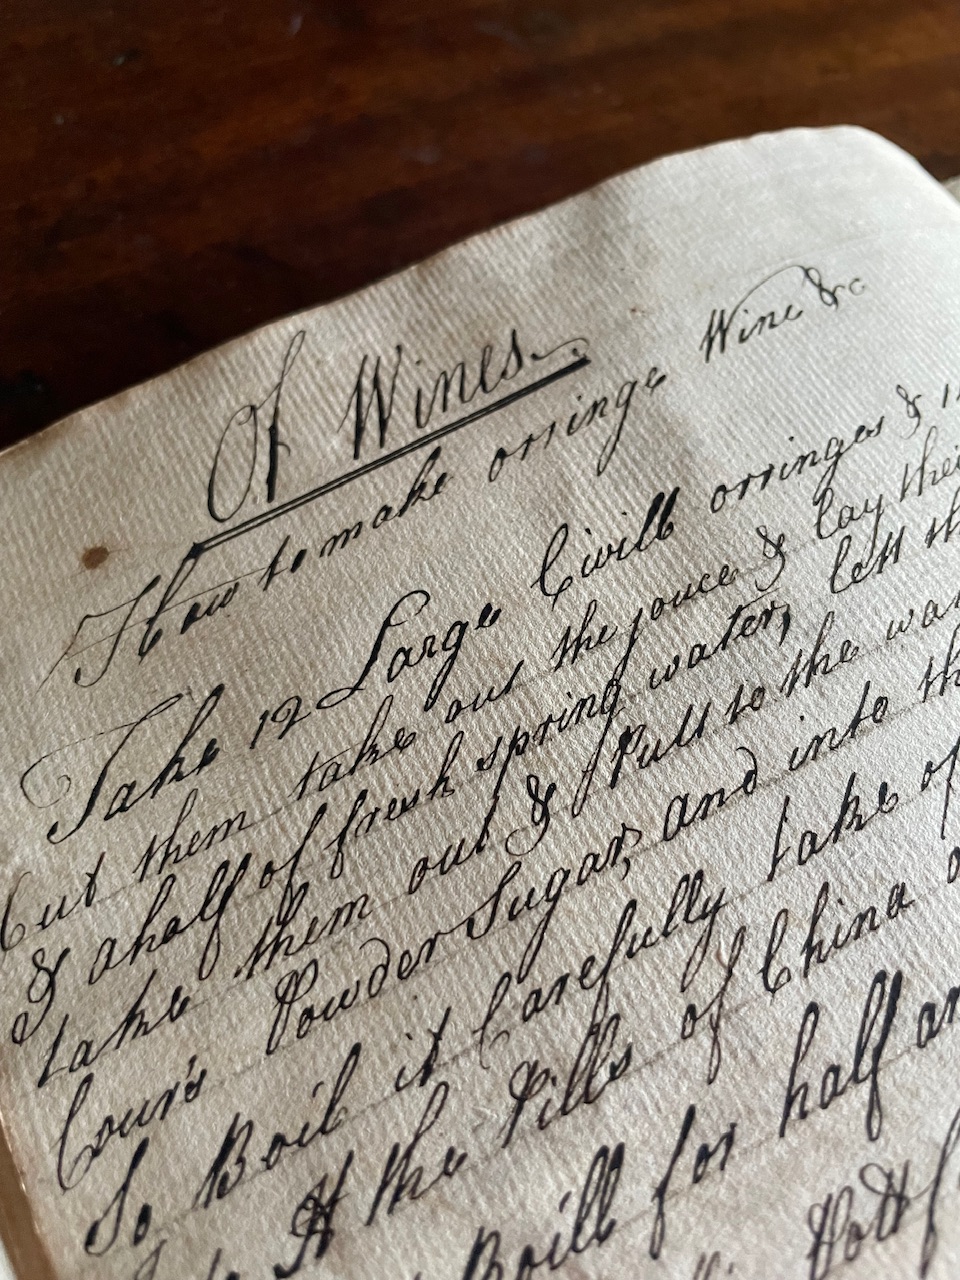 Of Wines
How to make orringe Wine &c
Take 12 Large Civill orringes &
Cut them take out the jouce & lay their
& a half of fresh spring water, lett
take them out & Putt to the
Cours Powder Sugar, and into
So Boil it Carefully take of
It the Pills of China
Boill for half an